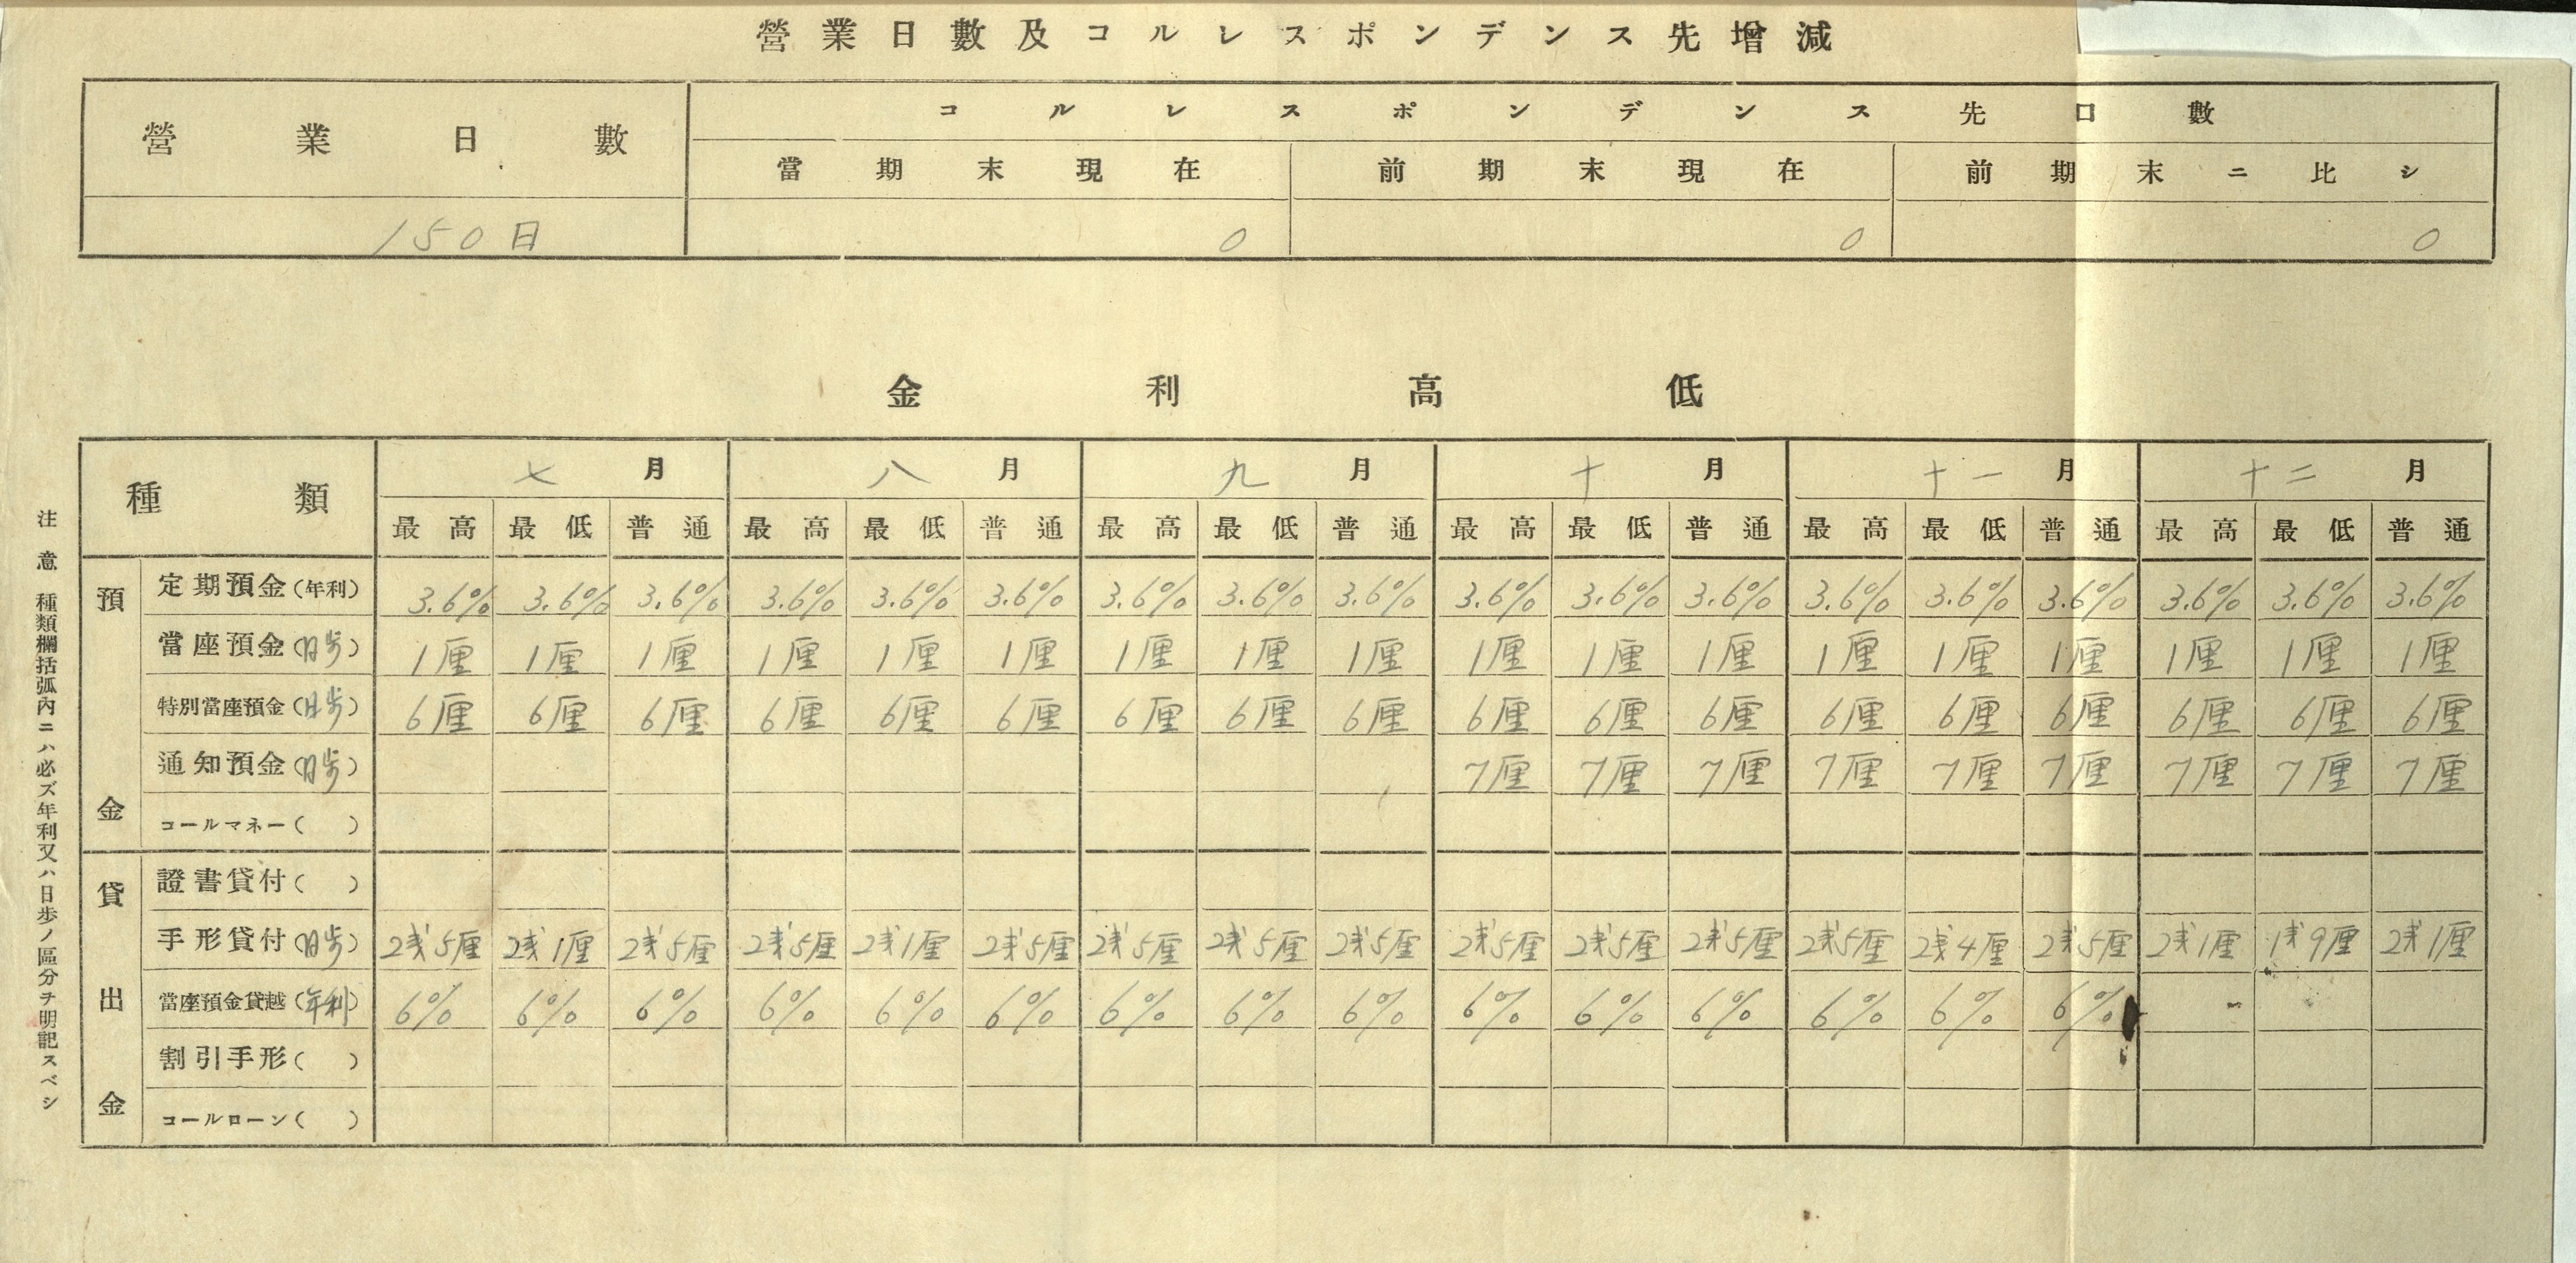 營業日數及コルレスポンデンス先增減
營業日數 コルレスポンデンス先口數
當期末現在 前期末現在 前期末ニ比シ
150日 0 0 0
金利高低
種類 七月 八月 九月 十月 十一月 十二月
最高 最低 普通 最高 最低 普通 最高 最低 普通 最高 最低 普通 最高 最低 普通 最高 最低 普通
預金
定期預金(年利) 3.6% 3.6% 3.6% 3.6% 3.6% 3.6% 3.6% 3.6% 3.6% 3.6% 3.6% 3.6% 3.6% 3.6% 3.6% 3.6% 3.6% 3.6%
當座預金(日歩) 1厘 1厘 1厘 1厘 1厘 1厘 1厘 1厘 1厘 1厘 1厘 1厘 1厘 1厘 1厘 1厘 1厘 1厘
特別當座預金(日歩) 6厘 6厘 6厘 6厘 6厘 6厘 6厘 6厘 6厘 6厘 6厘 6厘 6厘 6厘 6厘 6厘 6厘 6厘
通知預金(日歩) 7厘 7厘 7厘 7厘 7厘 7厘 7厘 7厘 7厘
コールマネー( )
貸出金
證書貸付( )
手形貸付(日歩) 2戋5厘 2戋1厘 2戋5厘 2戋5厘 2戋1厘 2戋5厘 2戋5厘 2戋5厘 2戋5厘 2戋5厘 2戋5厘 2戋5厘 2戋5厘 2戋4厘 2戋5厘 2戋1厘 1戋9厘 2戋1厘
當座預金貸越(年利) 6% 6% 6% 6% 6% 6% 6% 6% 6% 6% 6% 6% 6% 6% 6%
割引手形( )
コールローン( )
注意 種類欄括弧內ニハ必ズ年利又ハ日歩ノ區分ヲ明記スベシ